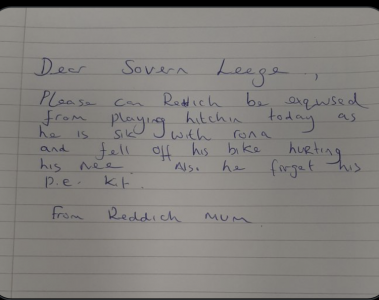 Dear Sovern Leege,
Please can Reddich be exqwsed
from playing hitchin today as
he is sik with rona
and fell off his bike hurting
his nee. Also he forget his
p.e. kit.
from Reddich mum